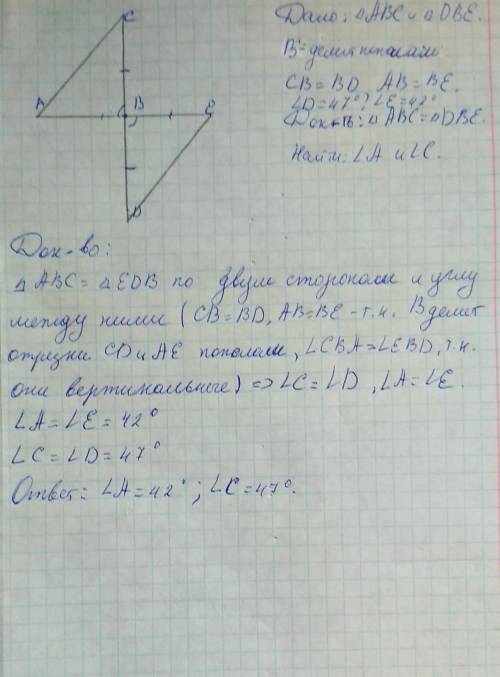 Дано: △ABC и △DBE.
B - делит пополам
CB = BD AB = BE.
∠D = 47°; ∠E = 42°
Док-ть: △ABC = △DBE.
Найти: ∠A и ∠C.
C
A
B
E
D
Док-во:
△ABC = △EDB по двум сторонам и углу
между ними (CB = BD, AB = BE - т.к. B делит
отрезки CD и AE пополам, ∠CBA = ∠EBD, т.к.
они вертикальные) => ∠C = ∠D, ∠A = ∠E.
∠A = ∠E = 42°
∠C = ∠D = 47°
Ответ: ∠A = 42°; ∠C = 47°.